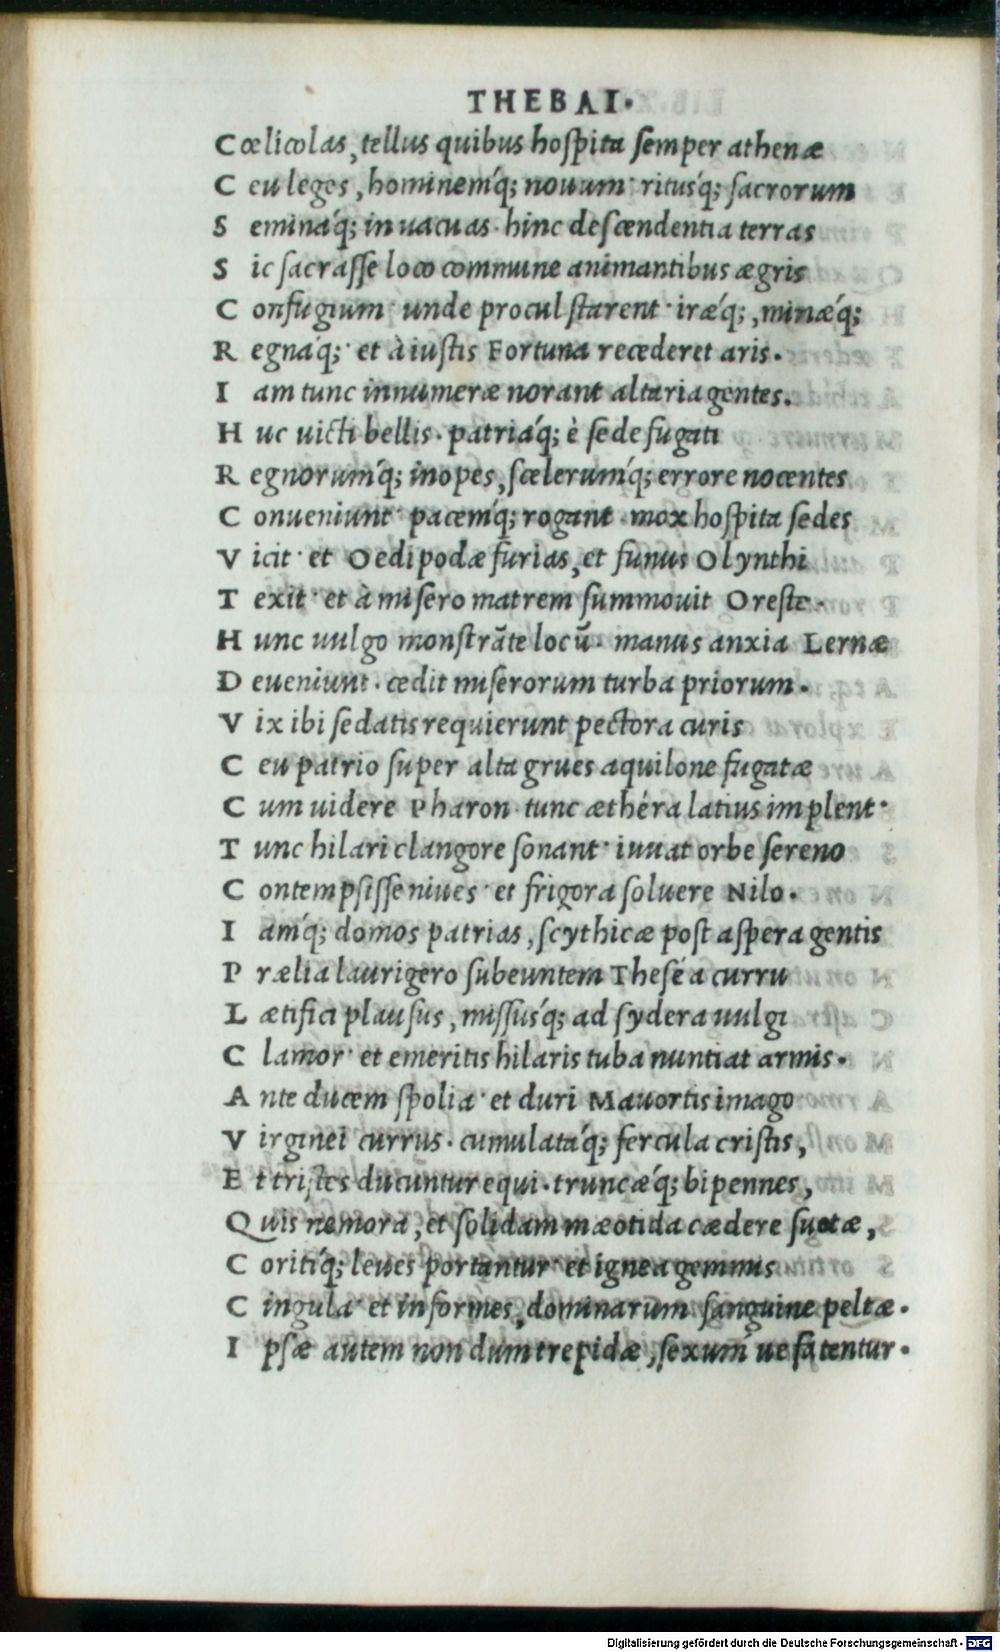 THEBAI.
Cœlicolas, tellus quibus hospita semper athenæ
Ceu leges, hominemq́; nouum· ritusq́; sacrorum
Seminaq́; in uacuas· hinc descendentia terras
Sic sacrasse loco commune animantibus ægris
Confugium· unde procul starent· iræq́;, minæq́;
Regnaq́;· et à iustis Fortuna recederet aris.
Iam tunc innumeræ norant altaria gentes.
Huc uicti bellis· patriaq́; è sede fugati
Regnorumq́; inopes, scelerumq́; errore nocentes
Conueniunt· pacemq́; rogant· mox hospita sedes
Vicit· et Oedipodæ furias, et funus Olynthi
Texit· et à misero matrem summouit Oreste.
Hunc uulgo monstrāte locū. manus anxia Lernæ
Deueniunt. cedit miserorum turba priorum.
Vix ibi sedatis requierunt pectora curis
Ceu patrio super alta grues aquilone fugatæ
Cum uidere Pharon· tunc æthéra latius implent·
Tunc hilari clangore sonant· iuuat orbe sereno
Contempsisse niues· et frigora soluere Nilo.
Iamq́; domos patrias, scythicæ post aspera gentis
Prælia laurigero subeuntem Theséa curru
Lætifici plausus, missusq́; ad sydera uulgi
Clamor· et emeritis hilaris tuba nuntiat armis.
Ante ducem spolia· et duri Mauortis imago
Virginei currus. cumulataq́; fercula cristis,
Et tristes ducuntur equi. truncæq́; bipennes,
Quis nemora, et solidam mæotida cædere suetæ,
Coritiq́; leues portantur· et ignea gemmis
Cingula· et informes, dominarum sanguine peltæ.
Ipsæ autem nondum trepidæ, sexum ue fatentur.
Digitalisierung gefördert durch die Deutsche Forschungsgemeinschaft - DFG